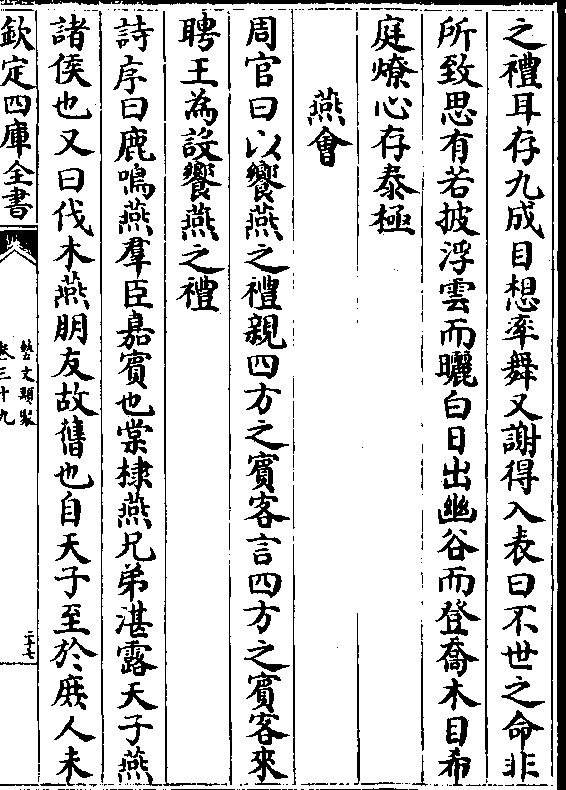 之禮耳存九成目想率舞又謝得入表曰不世之命非
所致思有若披浮雲而曬白日出幽谷而登喬木目希
庭燎心存泰極
燕會
周官曰以饗燕之禮親四方之賓客言四方之賓客來
聘王為設饗燕之禮
詩序曰鹿鳴燕羣臣嘉賓也棠棣燕兄弟湛露天子燕
諸侯也又曰伐木燕朋友故舊也自天子至於庶人未
欽定四庫全書
藝文類聚
卷三十九
二十七